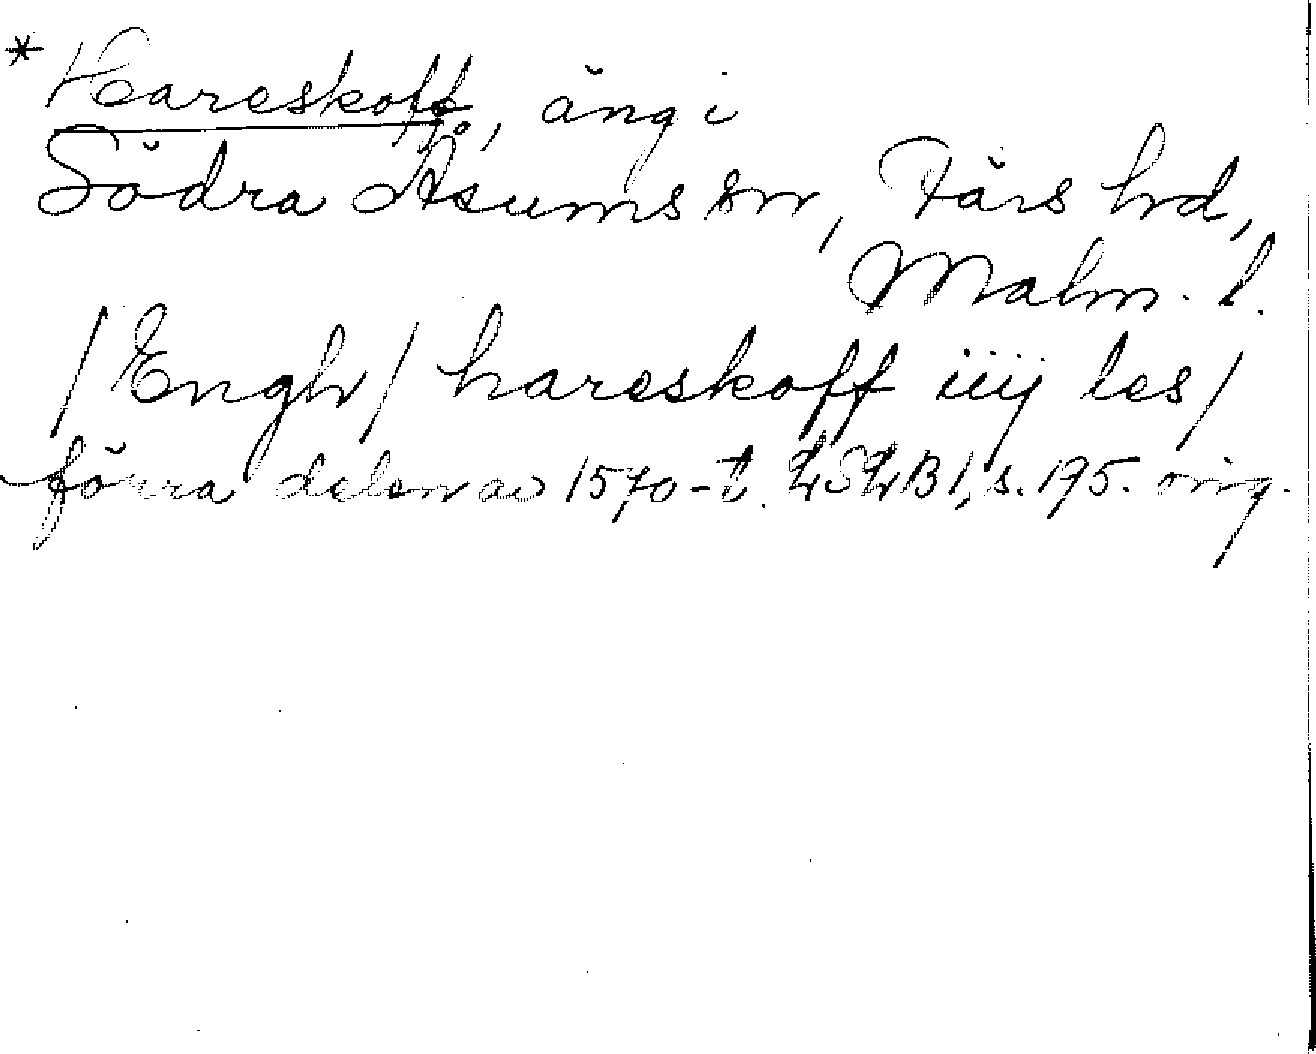 * Hareskoff, äng i
Södra Åsums sn, Färs hd,
Malm. l.
/Engh/ hareskoff iiij les/
förra delen av 1570-t. LSLB 1, s. 195. orig.